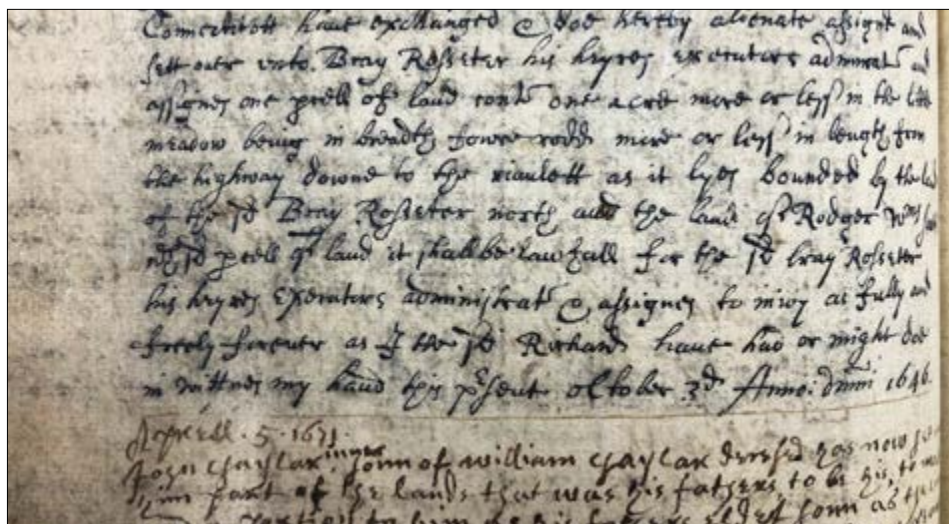 Conecticott have exchanged & doe hereby alienate assigne and
sett over unto Bray Rosseter his heyres executors administrat and
assignes one prcell of land cont one acre more or less in the little
meadow being in breadth fower rodds more or less in length from
the highway downe to the riaulett as it lyes bounded by the land
of the sd Bray Rosseter north and the land of Rodger Wms
wch sd prcell of land it shall be lawfull for the sd bray Rosseter
his heyres Executors administrat & assignes to injoy as fully and
freely forever as I the sd Richard have had or might doe
in wittnes my hand this prsent October 3d Anno: dmni 1646.
Aprell . 5 . 1671
John Chaylar sonn of william Chaylar desesed has now
him part of the lands that was his fathers to be his
to him as his fathers eldest sonn as